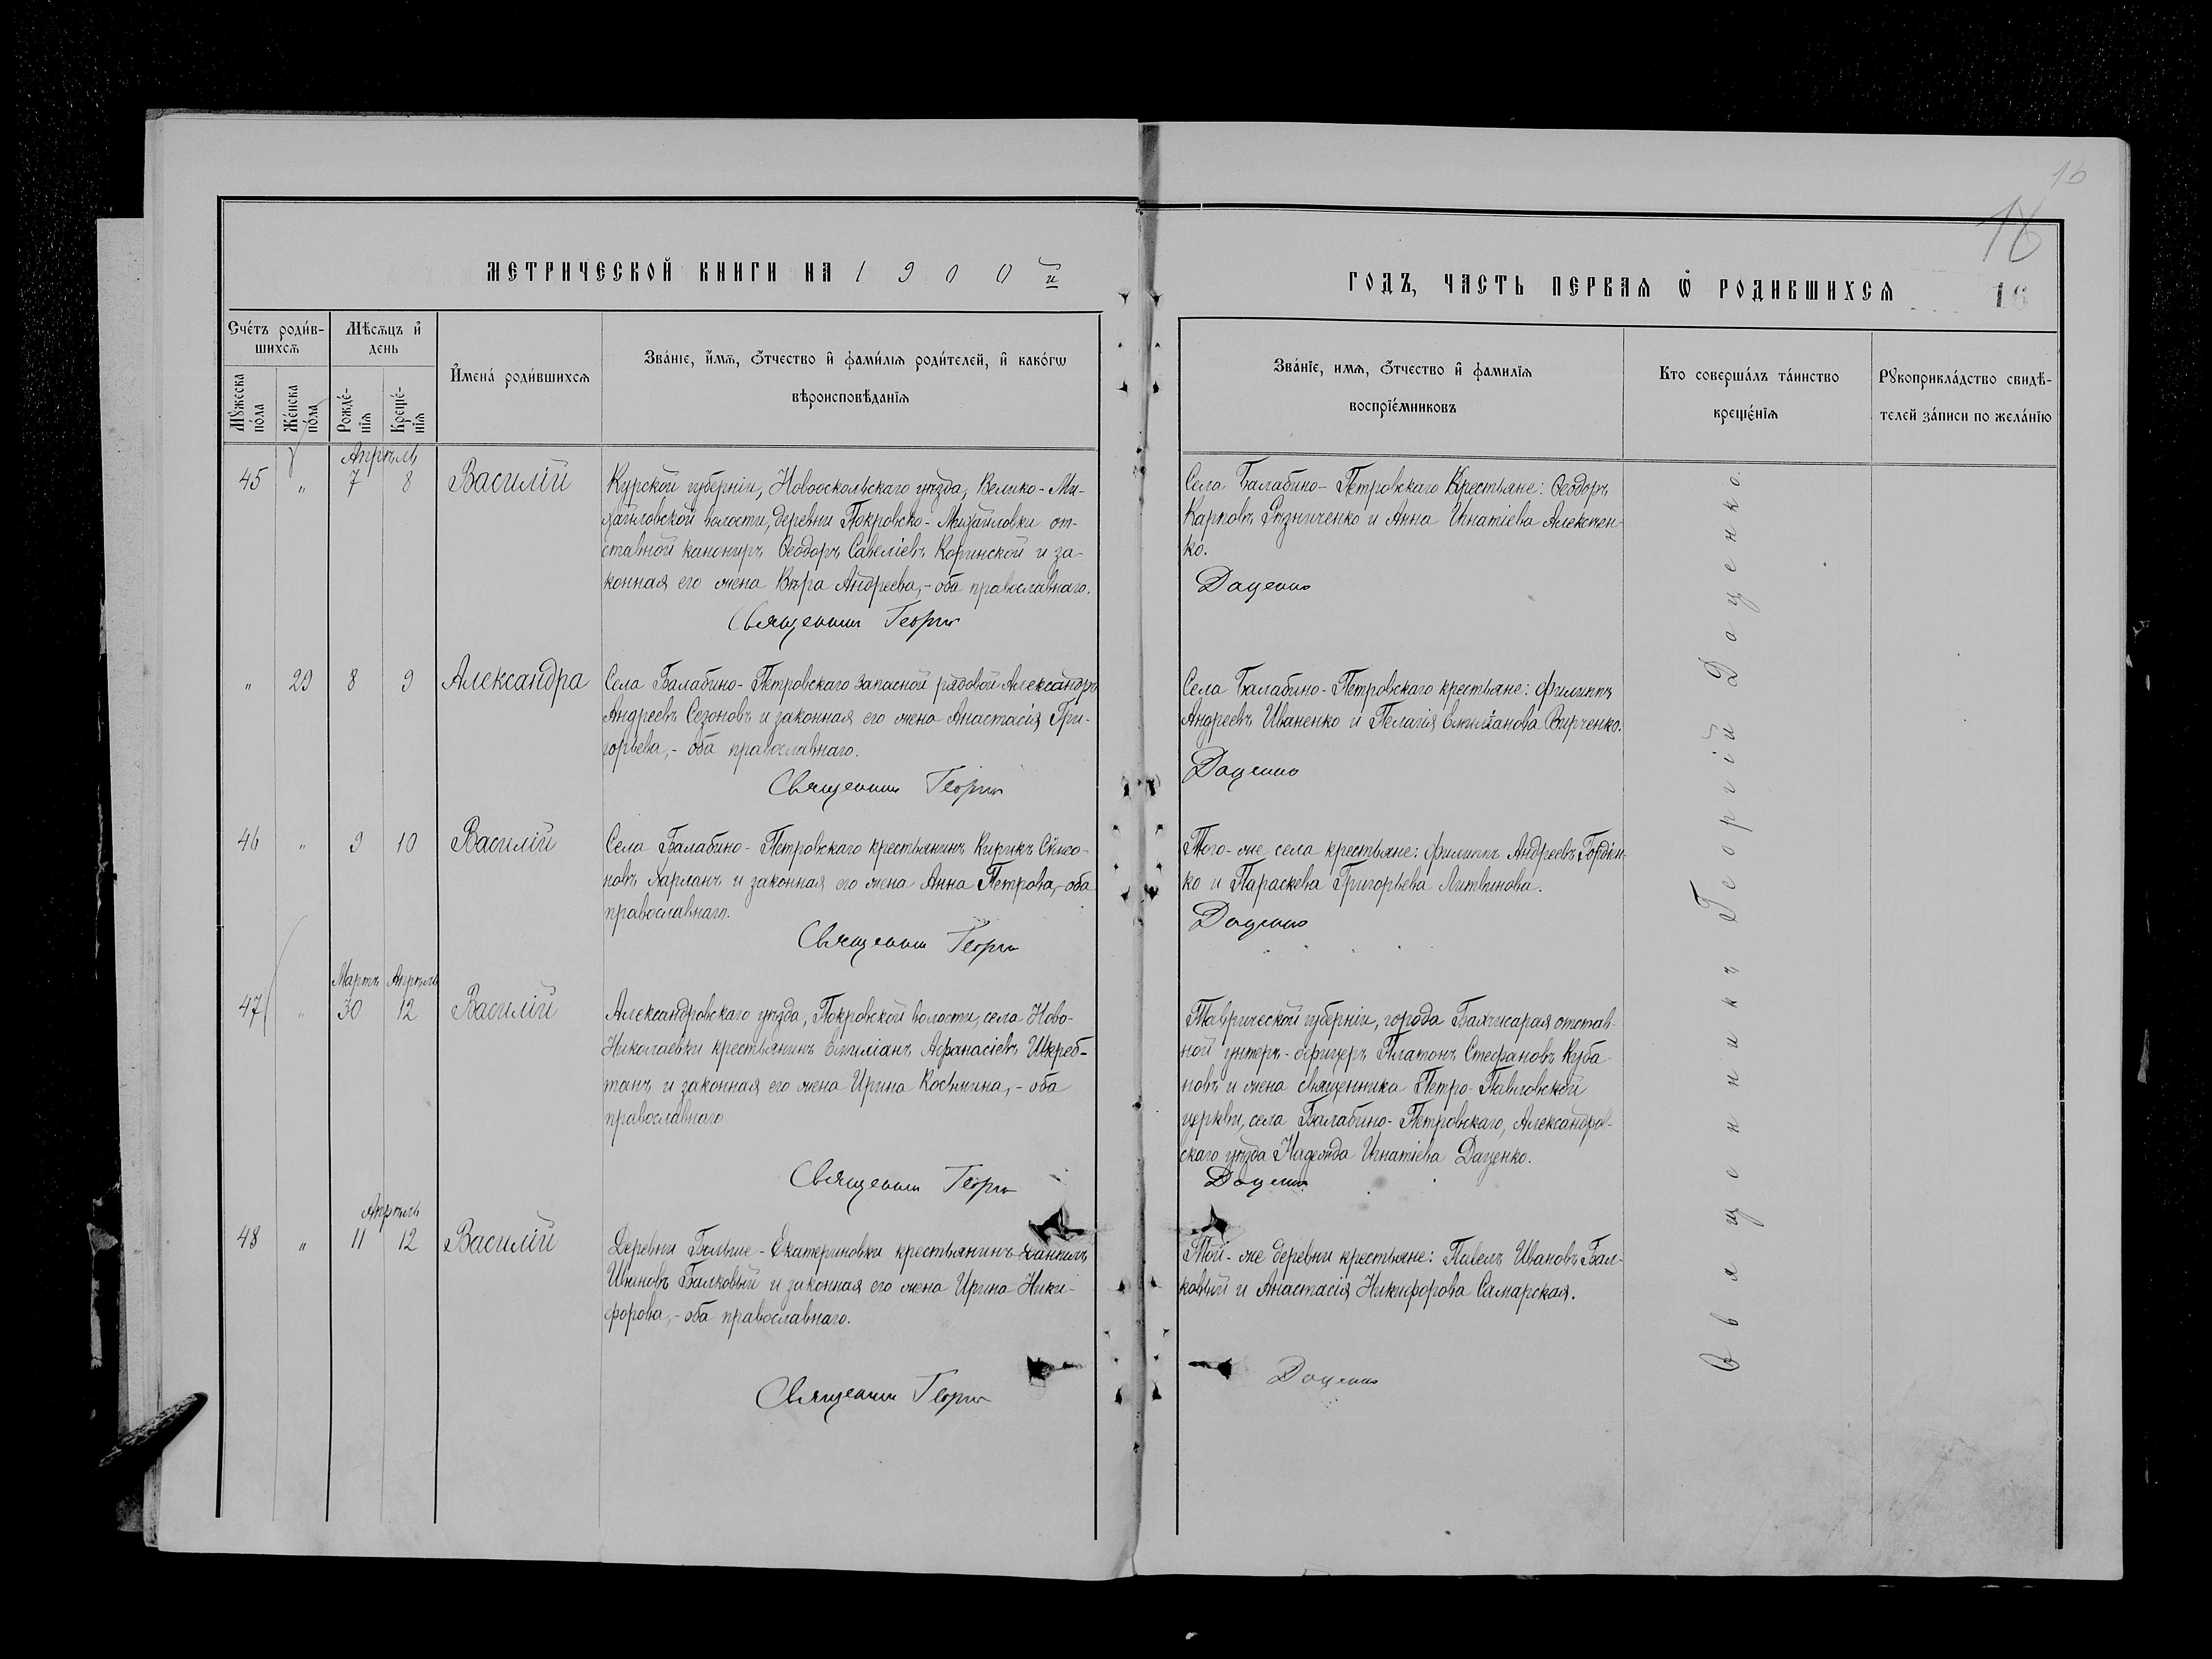 16
18
МЕТРИЧЕСКОЙ КНИГИ НА 1900й
ГОДЪ, ЧАСТЬ ПЕРВАЯ Ѿ РОДИВШИХСЯ
16
Счетъ родив-
шихся
Мѣсяцъ и
день
Имена родившихся
Званіе, имя, отчество и фамилія родителей, и какогѡ
вѣроисповѣданія
Мужеска
пола
Женска
пола
Рожде-
нія
Креще-
нія
Званіе, имя, отчество и фамилія
воспріемниковъ
Кто совершалъ таинство
крещенія
Рукоприкладство свидѣ-
телей записи по желанію
Апрѣль
45 " 7 8 Василій
Курской губерніи, Новооскольскаго уѣзда, Велико-Ми-
хайловской волости, деревни Покровско-Михайловки от-
ставной канониръ Ѳеодоръ Савеліевъ Коринской и за-
конная его жена Вѣра Андреева,- оба православнаго.
Священник Георгий
Села Балабино-Петровскаго Крестьяне: Ѳеодоръ
Карповъ Рѣзниченко и Анна Игнатіева Алексѣен-
ко.
Даценко
" 29 8 9 Александра
Села Балабино-Петровскаго запасной рядовой Александръ
Андреевъ Сезоновъ и законная его жена Анастасія Гри-
горьева,- оба православнаго.
Священник Георгий
Села Балабино-Петровскаго крестьяне: Филиппъ
Андреевъ Иваненко и Пелагія Емиліанова Вирченко.
Даценко
46 " 9 10 Василій
Села Балабино-Петровскаго крестьянинъ Кирикъ
новъ Харланъ и законная его жена Анна Петрова,- оба
православнаго.
Священник Георгий
Того-же села крестьяне: Филиппъ Андреевъ Гордіен-
ко и Параскева Григорьева Литвинова.
Даценко
Мартъ Апрѣль
47 " 30 12 Василій
Александровскаго уѣзда, Покровской волости, села Ново-
Николаевки крестьянинъ Емиліанъ Аѳанасіевъ Шкреб-
танъ и законная его жена Ирина Косьмина,- оба
православнаго
Священник Георгий
Таврической губерніи, города Бахчисарая отстав-
ной унтеръ-офицеръ Платонъ Стефановъ Куба-
новъ и жена священника Петро-Павловской
церкви, села Балабино-Петровскаго, Александров-
скаго уѣзда Надежда Игнатіева Даценко.
Даценко
Апрѣль
48 " 11 12 Василій
Деревни Больше-Екатериновки крестьянинъ Даніилъ
Ивановъ Балковый и законная его жена Ирина Ники-
форова,- оба православнаго.
Священник Георгий
Той-же деревни крестьяне: Павелъ Ивановъ Бал-
ковый и Анастасія Никифорова Самарская.
Даценко
Священникъ Георгій Даценко.